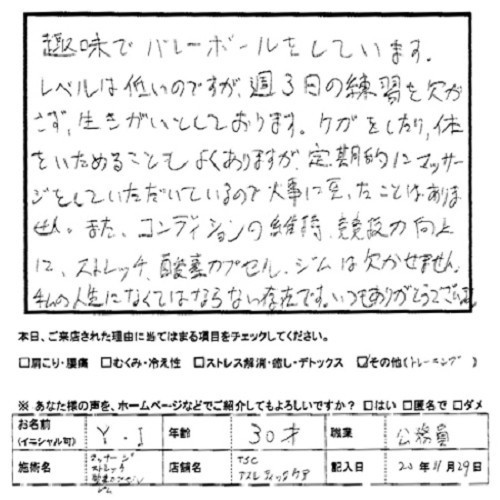 趣味でバレーボールをしています。
レベルは低いのですが、週3日の練習を欠か
さず、生きがいとしております。ケガをしたり、体
をいためることもよくありますが、定期的にマッサー
ジをしていただいているので大事に至ったことはありま
せん。また、コンディションの維持、競技力向上
に、ストレッチ、酸素カプセル、ジムは欠かせません。
私の人生になくてはならない存在です。いつもありがとうございます。
本日、ご来店された理由に当てはまる項目をチェックしてください。
□肩こり・腰痛 □むくみ・冷え性 □ストレス解消・癒し・デトックス ☑その他(トレーニング)
※ あなた様の声を、ホームページなどでご紹介してもよろしいですか? □はい □匿名で □ダメ
お名前 (イニシャル可) Y.I 年齢 30才 職業 公務員
施術名 マッサージ ストレッチ 酸素カプセル ジム 店舗名 TSC アスレティックケア 記入日 20年11月29日